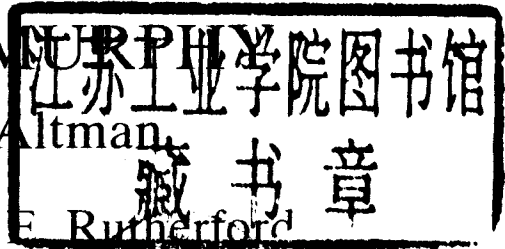 MURPHY
江苏工业学院图书馆
Altman
藏书章
E. Rutherford